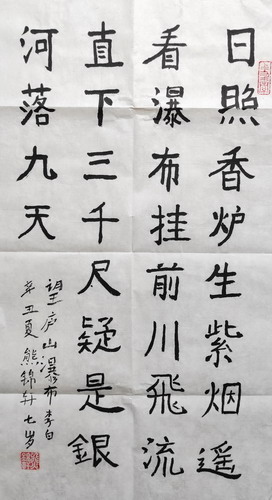 日照香炉生紫烟遥
看瀑布挂前川飛流
直下三千尺疑是銀
河落九天
望庐山瀑布李白
辛丑夏熊锦舟七岁